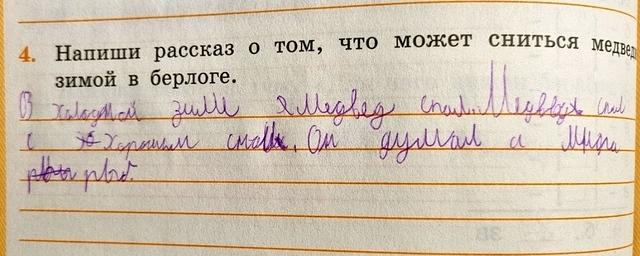 4. Напиши рассказ о том, что может сниться медвед
зимой в берлоге.
В халадной зиме я Медвед спал. Медведь спал
с хорошим сном. Он думал а
рыб.